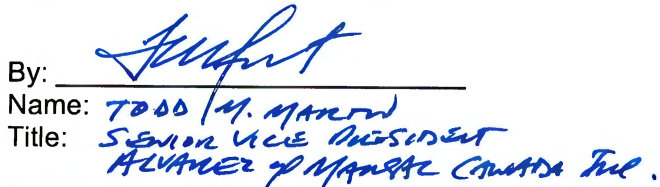 By:
Name: TODD M. MARTIN
Title: SENIOR VICE PRESIDENT
ALVAREZ & MARSAL CANADA INC.